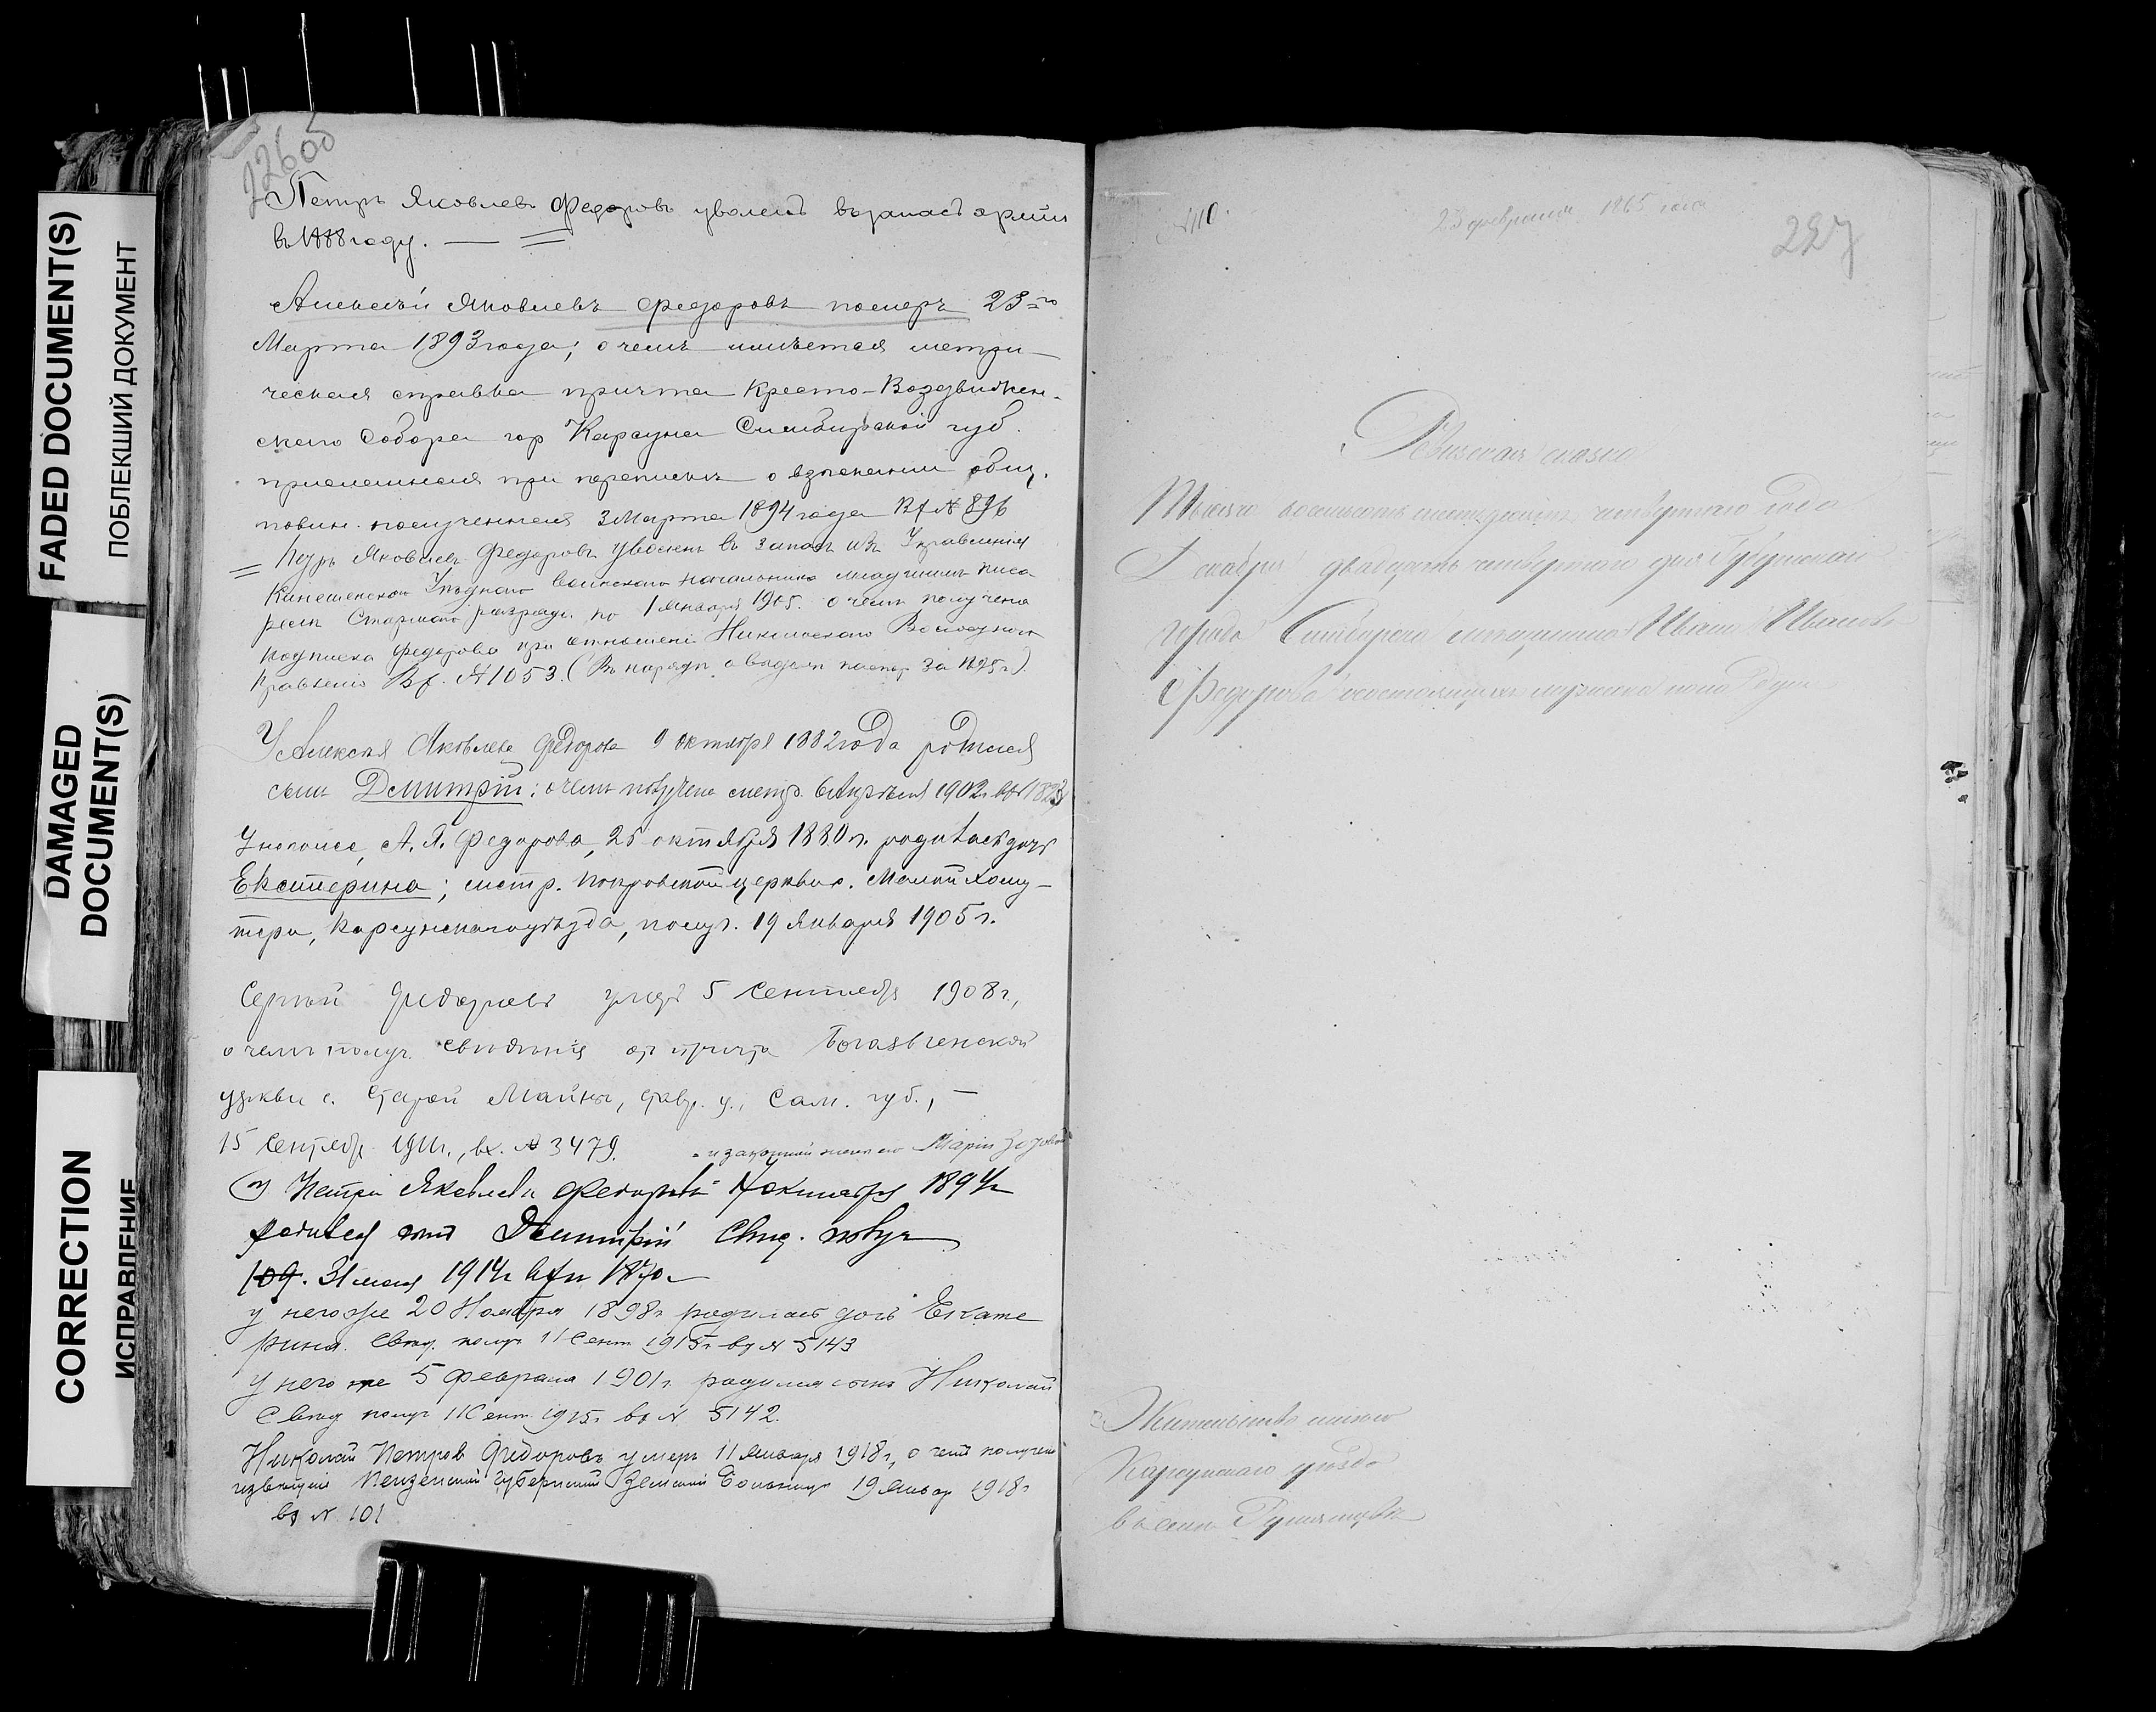 FADED DOCUMENT(S)
ПОБЛЕКШИЙ ДОКУМЕНТ
DAMAGED
DOCUMENT(S)
CORRECTION
ИСПРАВЛЕНИЕ
Петръ Яковлевъ Федоровъ уволенъ въ запасъ арміи
въ 1888 году.
Алексѣй Яковлевъ Федоровъ померъ 23-го
Марта 1893 года; о чемъ имѣется метри-
ческая справка причта Кресто-Воздвижен-
скаго Собора гор Карсуна Симбирской губ.
при перепискѣ о взысканіи общ.
повин. полученная 3 Марта 1894 года Вх № 896
Петръ Яковлевъ Федоровъ уволенъ въ запасъ изъ Управленія
Кинешемскаго Уѣзднаго Воинскаго Начальника младшимъ писа-
ремъ Старшаго разряда по 1 Января 1905. о чемъ получена
подписка Федорова при отношеніи Никольскаго Волостного
Правленія Вх. № 1053. (Въ нарядѣ о выдачѣ паспор за 1895 г.)
У Алексѣя Яковлева Федорова 9 октября 1882 года родился
сынъ Дмитрій; о чемъ получена метр. 6 Апрѣля 1902 г.
У него же, А. Я. Федорова, 25 октября 1880 г. родилась дочь
Екатерина; метр. Покровской церкви с. Малой Хому-
тери, Карсунскаго уѣзда, получ. 19 Января 1905 г.
Сергѣй Федоровъ умеръ 5 Сентября 1908 г.,
о чемъ получ. свѣдѣнія отъ причта Богоявленской
церкви с. Старой Майны, Ставр. у., Сам. губ., —
15 Сентябр. 1911 г., вх. № 3479.
и законной жены его Маріи
У Петра Яковлева Федорова 4 октября 1894 г
родился сынъ Дмитрій Свид. получ
109. 31 мая 1914 г вх № 1870
у него же 20 Ноября 1898 г родилась дочь Екате
рина. Свид. получ 11 Сент 1915 г вх № 5143
у него же 5 Февраля 1901 г. родился сынъ Николай
Свид получ 11 Сент. 1915 г вх № 5142.
Николай Петров Федоровъ умеръ 11 Января 1918 г, о чемъ получено
извѣщеніе Пензенской Губернской Земской Больницы 19 Январ 1918 г
вх № 101
№ 110.
23 февраля 1865 года
227
Ревизская сказка
Тысяча восемьсотъ шестьдесятъ четвертаго года
Декабря двадцать четвертаго дня Губернскаго
города Симбирска мѣщанина Ивана Иванова
Федорова о состоящихъ мужеска пола
Жительство имѣю
Карсунскаго уѣзда
въ селѣ Румянцевѣ